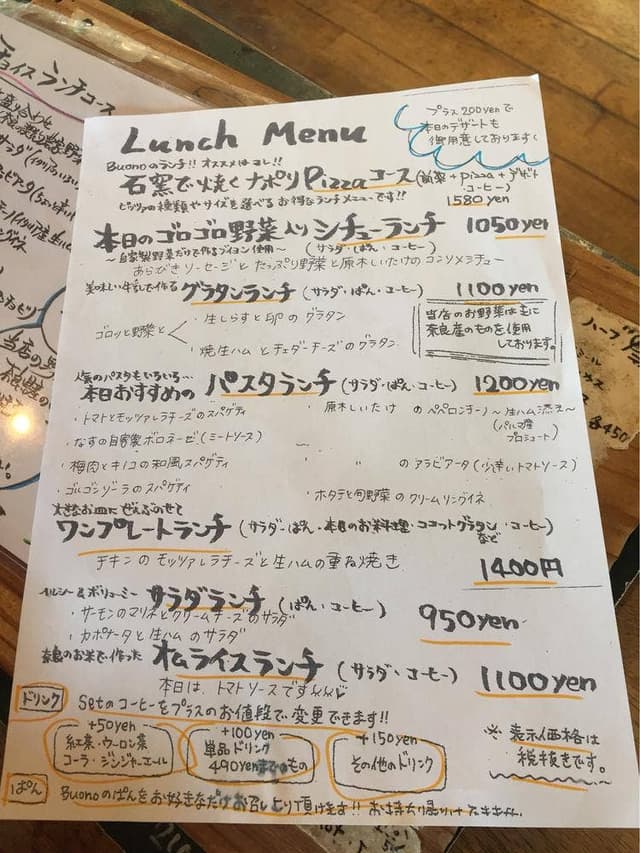 Lunch Menu
プラス200yenで
本日のデザートも
御用意しております
Buonoのランチ!! オススメはコレ!!
石窯で焼くナポリPizzaコース(前菜+pizza+デザート
・コーヒー)
ピッツァの種類やサイズを選べるお得なランチメニューです!!
1580yen
本日のゴロゴロ野菜入りシチューランチ 1050yen
〜自家製野菜だけで作るブイヨン使用〜 (サラダ・ぱん・コーヒー)
あらびきソーセージとたっぷり野菜と原木しいたけのコンソメシチュー
美味しい牛乳で作る グラタンランチ (サラダ・ぱん・コーヒー) 1100yen
ゴロッと野菜と
・生しらすと卵のグラタン
・焼生ハムとチェダーチーズのグラタン
当店のお野菜は主に
奈良産のものを使用
しております。
人気のパスタもいろいろ…
本日おすすめの パスタランチ (サラダ・ぱん・コーヒー) 1200yen
・トマトとモッツァレラチーズのスパゲティ
・原木しいたけ のペペロンチーノ〜生ハム添え〜
(パルマ産
プロシュート)
・なすの自家製ボロネーゼ(ミートソース)
・梅肉とキノコの和風スパゲティ
・ 〃 のアラビアータ(少し辛いトマトソース)
・ゴルゴンゾーラのスパゲティ
・ホタテと旬野菜のクリームリングイネ
大きなお皿にぜんぶのせて
ワンプレートランチ (サラダ・ぱん・本日のお料理・ココットグラタン・コーヒー)
など
チキンのモッツァレラチーズと生ハムの重ね焼き
1400円
ヘルシー&ボリューミー サラダランチ (ぱん・コーヒー) 950yen
・サーモンのマリネとクリームチーズのサラダ
・カポナータと生ハムのサラダ
奈良のお米で作った オムライスランチ (サラダ・コーヒー) 1100yen
本日は、トマトソースです
ドリンク Setのコーヒーをプラスのお値段で変更できます!!
+50yen
紅茶・ウーロン茶
コーラ・ジンジャーエール
+100yen
単品ドリンク
490yenまでのもの
+150yen
その他のドリンク
※表示価格は
税抜きです。
ぱん Buonoのぱんをお好きなだけお召し上り頂けます!! お持ち帰りはできません
チョイスランチコース
各450